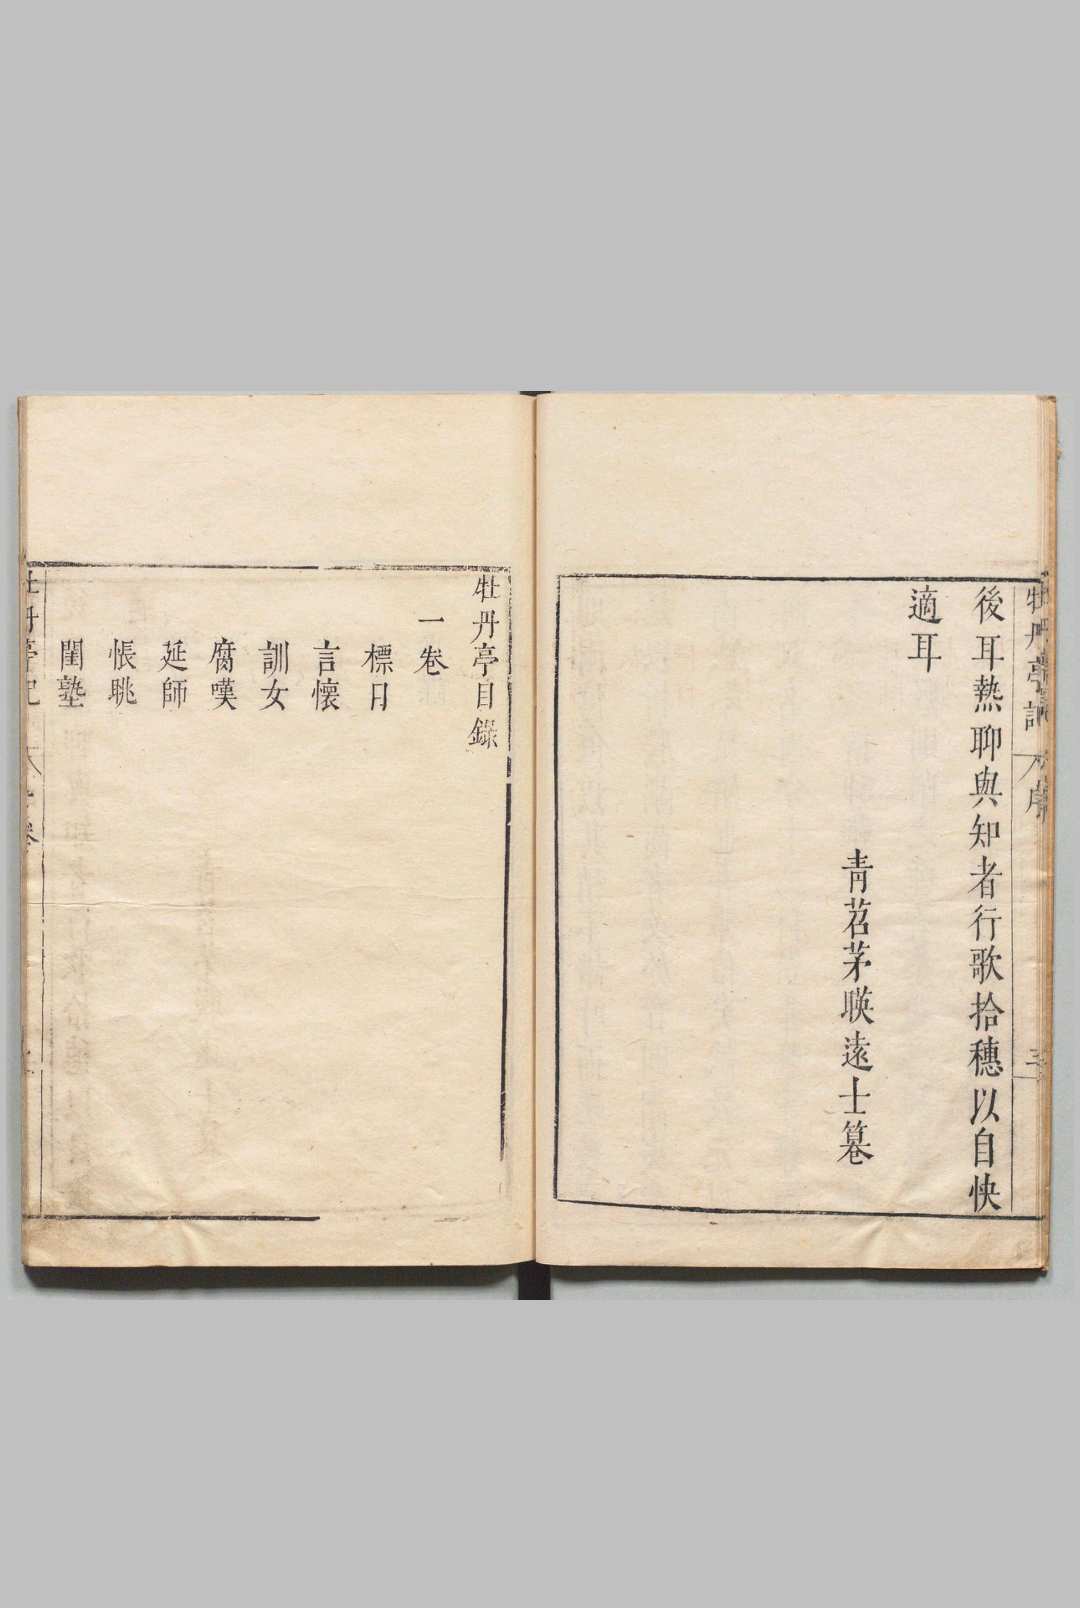 後耳熱聊與知者行歌拾穗以自快
適耳
青苕茅暎遠士篹
牡丹亭目錄
一卷
標目
言懷
訓女
腐嘆
延師
悵眺
閨塾